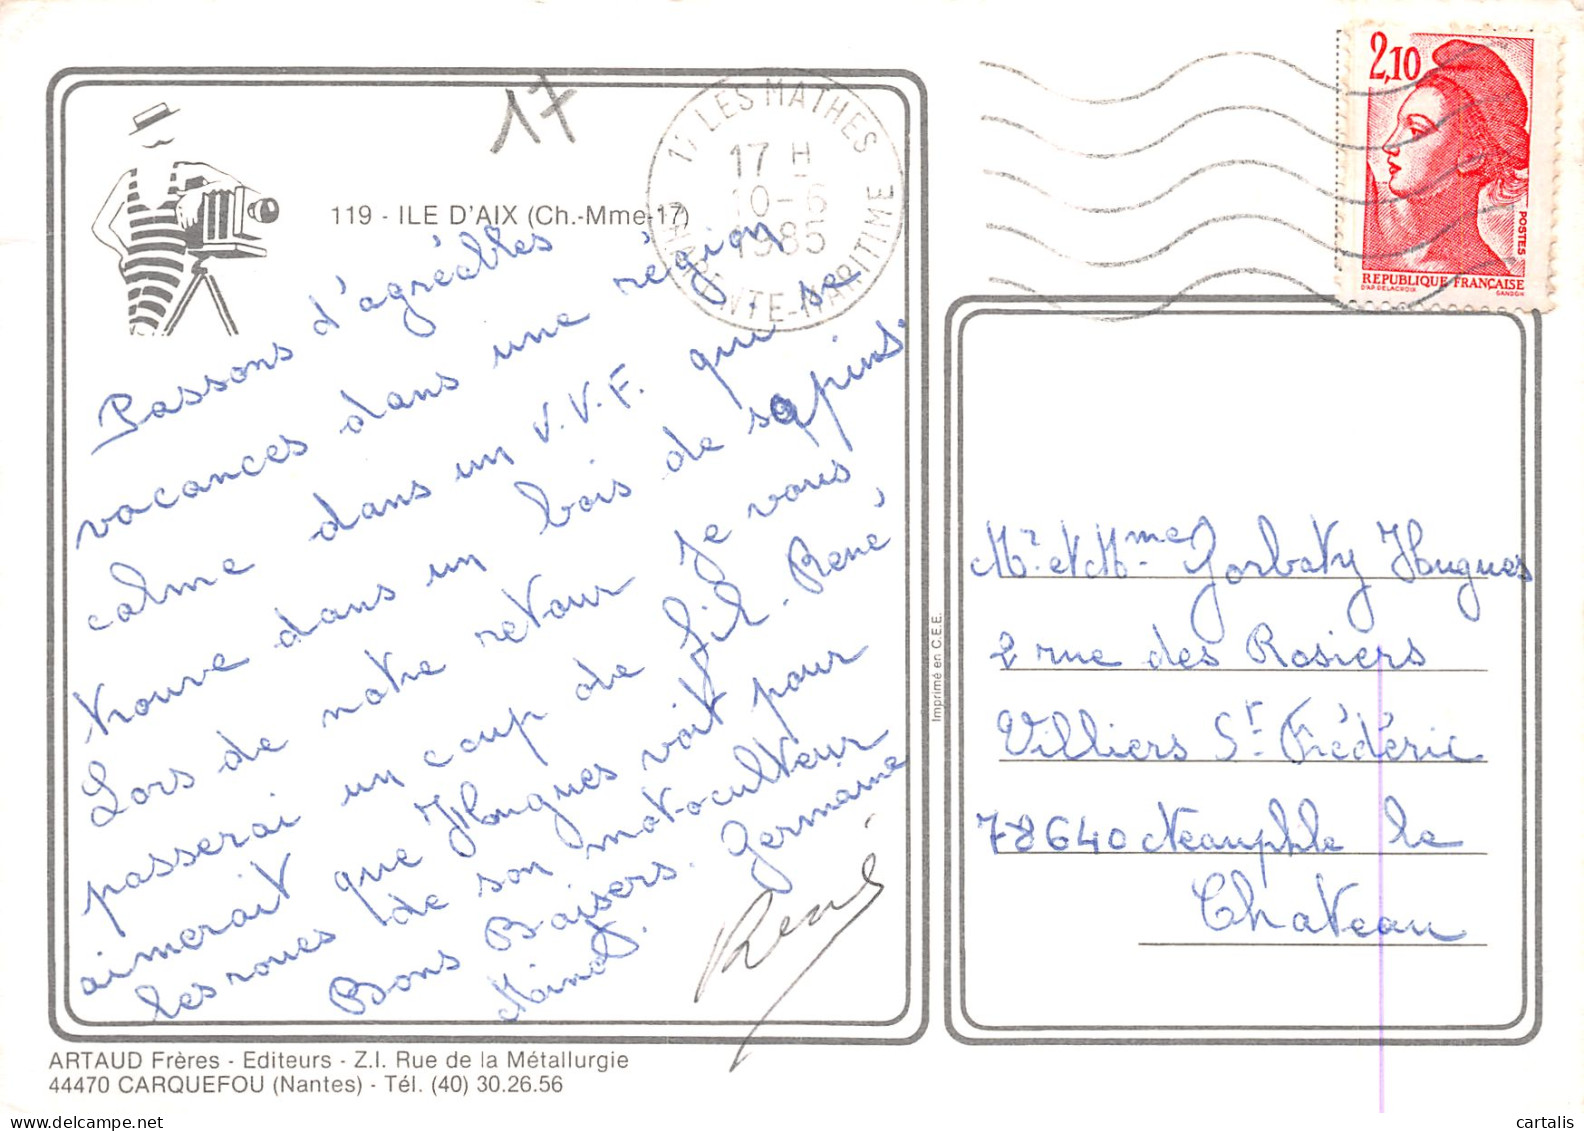 17
17 LES MATHES
17 H
10-6
1985
CHARENTE-MARITIME
2,10
POSTES
REPUBLIQUE FRANÇAISE
D'AP. DELACROIX
GANDON
119 - ILE D'AIX (Ch.-Mme-17)
Passons d'agréables
vacances dans une région
calme dans un V.V.F. qui se
trouve dans un bois de sapins.
Lors de notre retour je vous
passerai un coup de fil. René,
aimerait que Hugues voit pour
les roues de son motoculteur
Bons Baisers. Germaine
René
Imprimé en C.E.E.
Mr. et Mme Gorbaty Hugues
2 rue des Rosiers
Villiers St Frédéric
78640 Neauphle le
Chateau
ARTAUD Frères - Editeurs - Z.I. Rue de la Métallurgie
44470 CARQUEFOU (Nantes) - Tél. (40) 30.26.56
cartalis